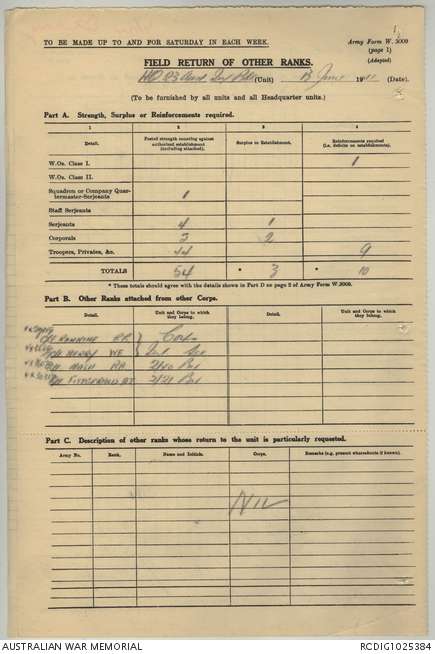 1
TO BE MADE UP TO AND FOR SATURDAY IN EACH WEEK.
Army Form W. 3009
(page 1)
(Adapted)
FIELD RETURN OF OTHER RANKS.
HQ 23 Aust Inf Bde (Unit) 13 June 1941 (Date).
(To be furnished by all units and all Headquarter units.)
Part A. Strength, Surplus or Reinforcements required.
1 2 3 4
Detail. Posted strength counting against authorized establishment (including attached). Surplus to Establishment. Reinforcements required (i.e. deficits on establishments).
W.Os. Class I. 1
W.Os. Class II.
Squadron or Company Quartermaster-Serjeants 1
Staff Serjeants
Serjeants 4 1
Corporals 2
Troopers, Privates, &c. 44 9
TOTALS 54 * 3 * 10
* These totals should agree with the details shown in Part D on page 2 of Army Form W.3009.
Part B. Other Ranks attached from other Corps.
Detail. Unit and Corps to which they belong. Detail. Unit and Corps to which they belong.
RANKINE Corps
HENRY WE
2/40 Bn
FITZGERALD 2/21 Bn
Part C. Description of other ranks whose return to the unit is particularly requested.
Army No. Rank. Name and Initials. Corps. Remarks (e.g., present whereabouts if known).
NIL
AUSTRALIAN WAR MEMORIAL RCDIG1025384